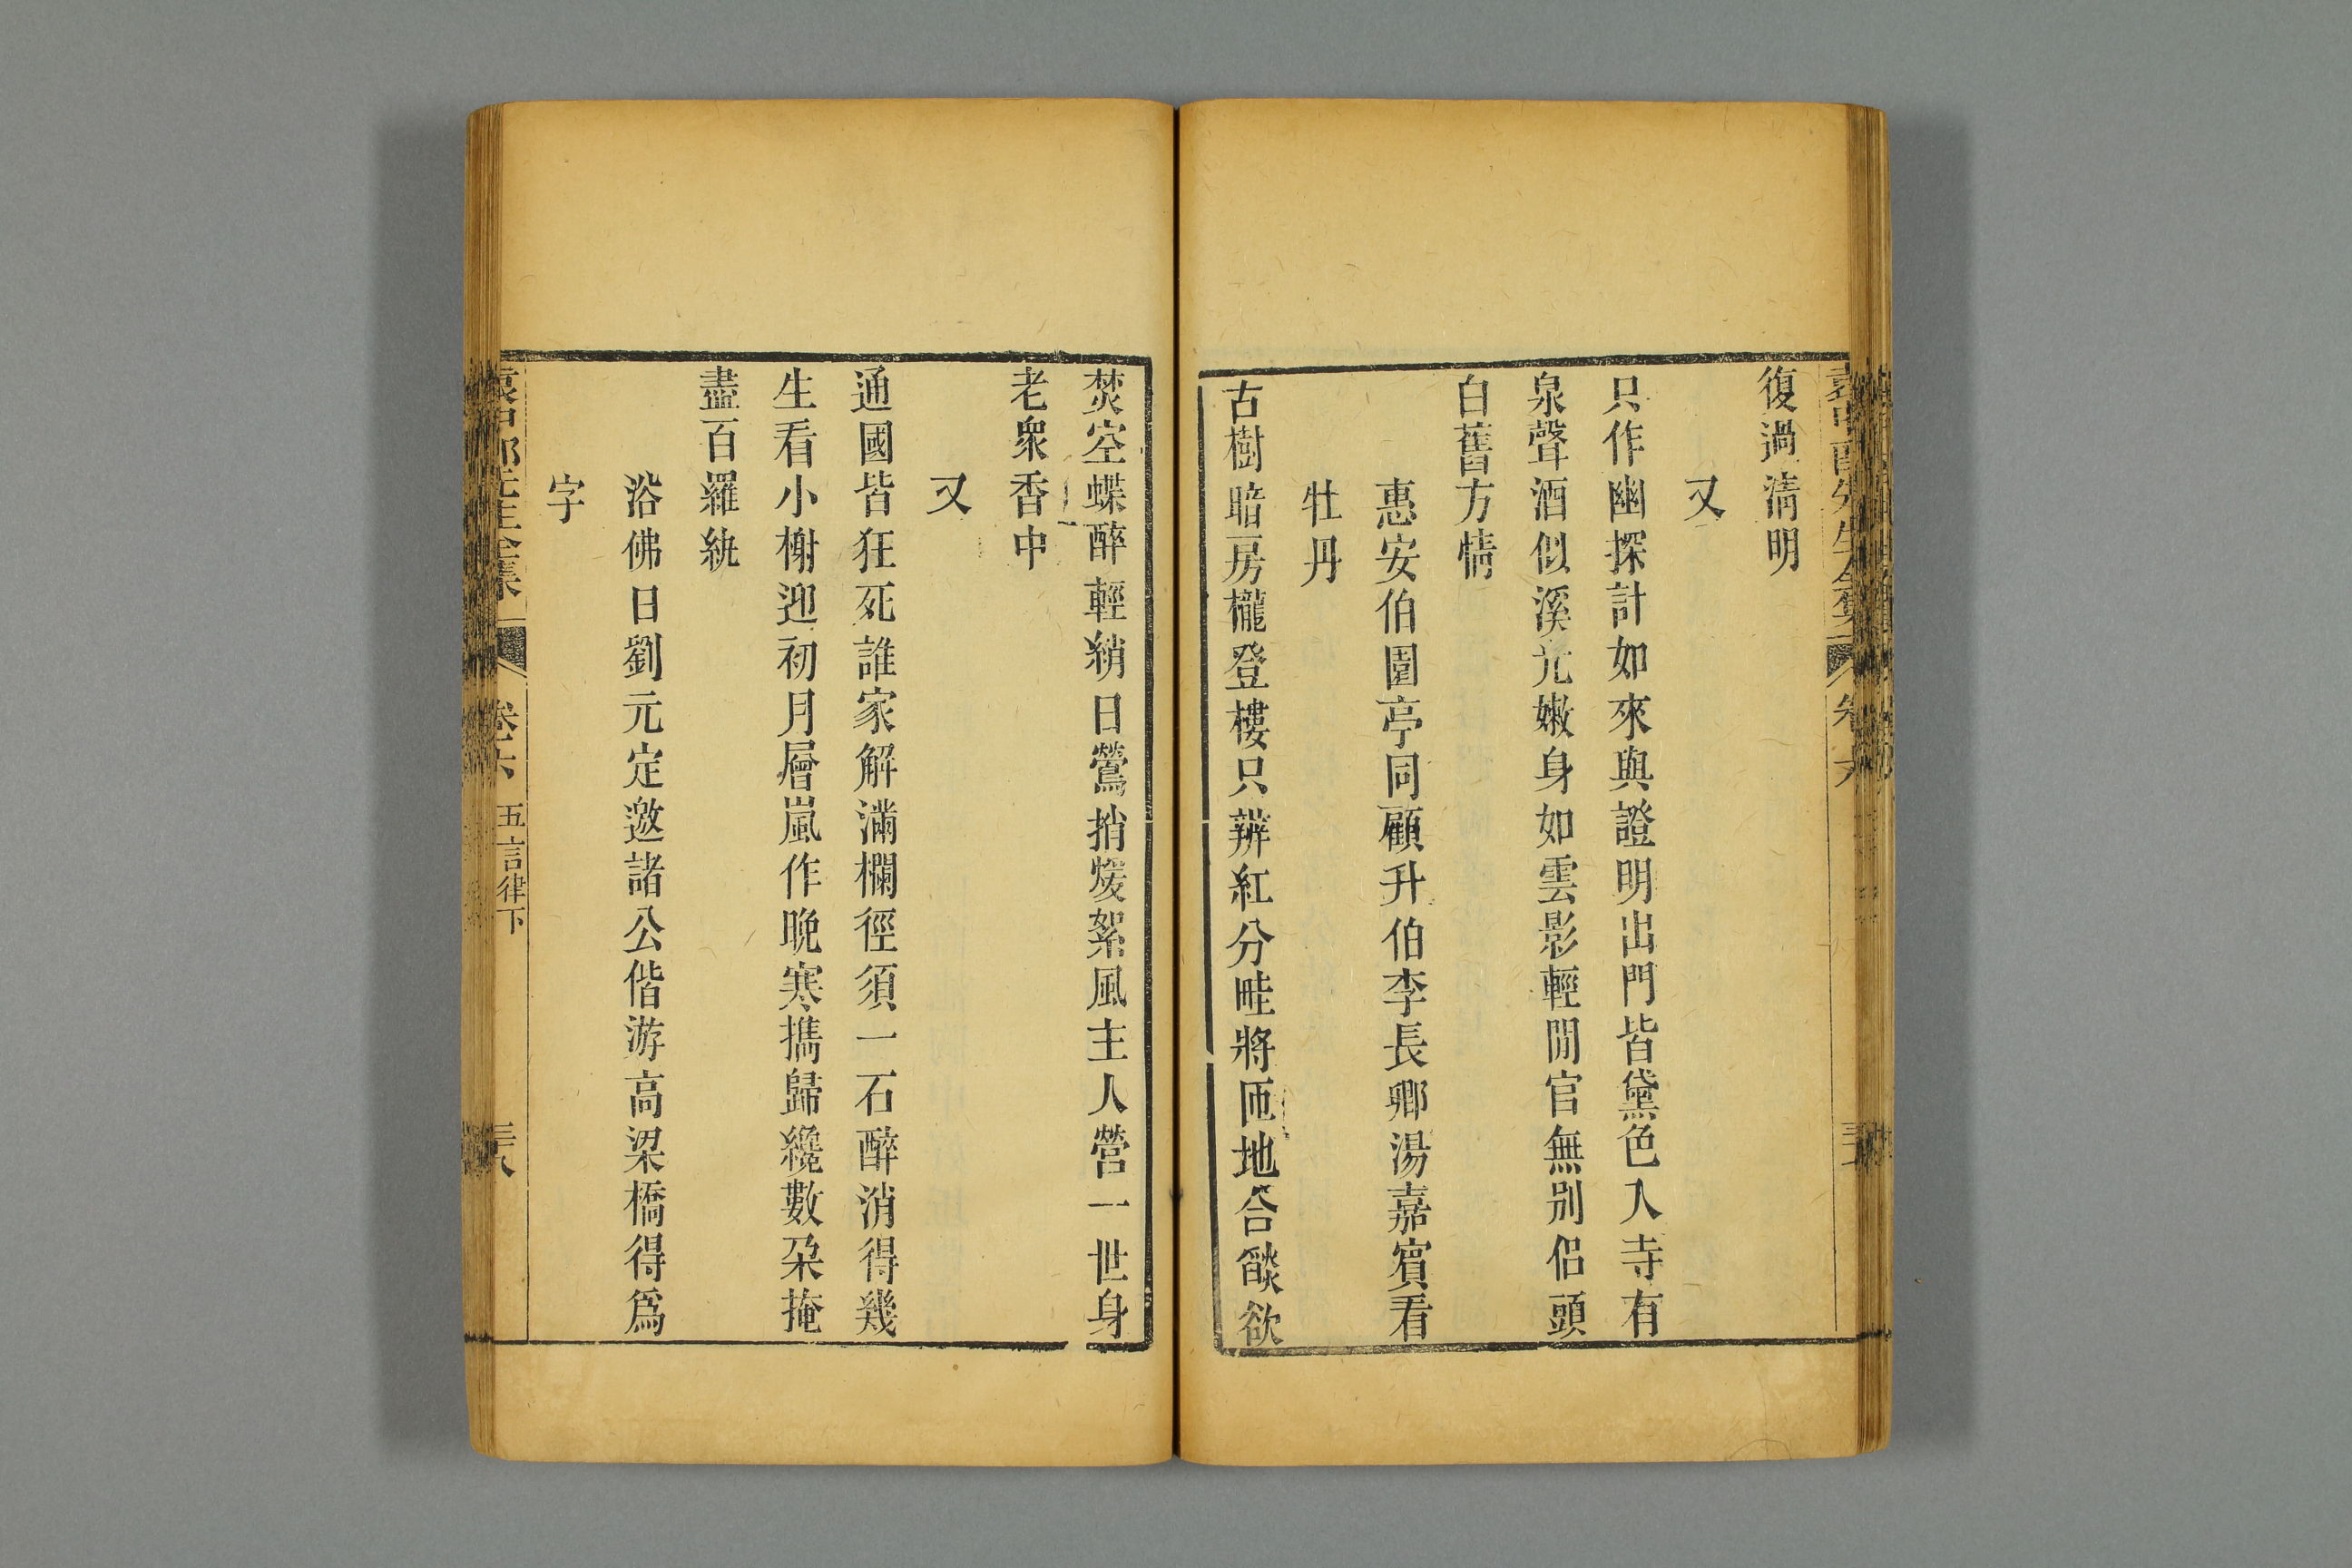 復過清明
又
只作幽探計如來與證明出門皆黛色入寺有
泉聲酒似溪光嫩身如雲影輕閒官無別侶頭
白舊方情
惠安伯園亭同顧升伯李長卿湯嘉賓看
牡丹
古樹暗房櫳登樓只辨紅分畦將匝地合燄欲
焚空蝶醉輕綃日鶯捎煖絮風主人營一世身
老衆香中
又
通國皆狂死誰家解滿欄徑須一石醉消得幾
生看小榭迎初月層嵐作晚寒攜歸纔數朶掩
盡百羅紈
浴佛日劉元定邀諸公偕游高梁橋得爲
字
袁中郎先生全集
卷六
五言律下
三八